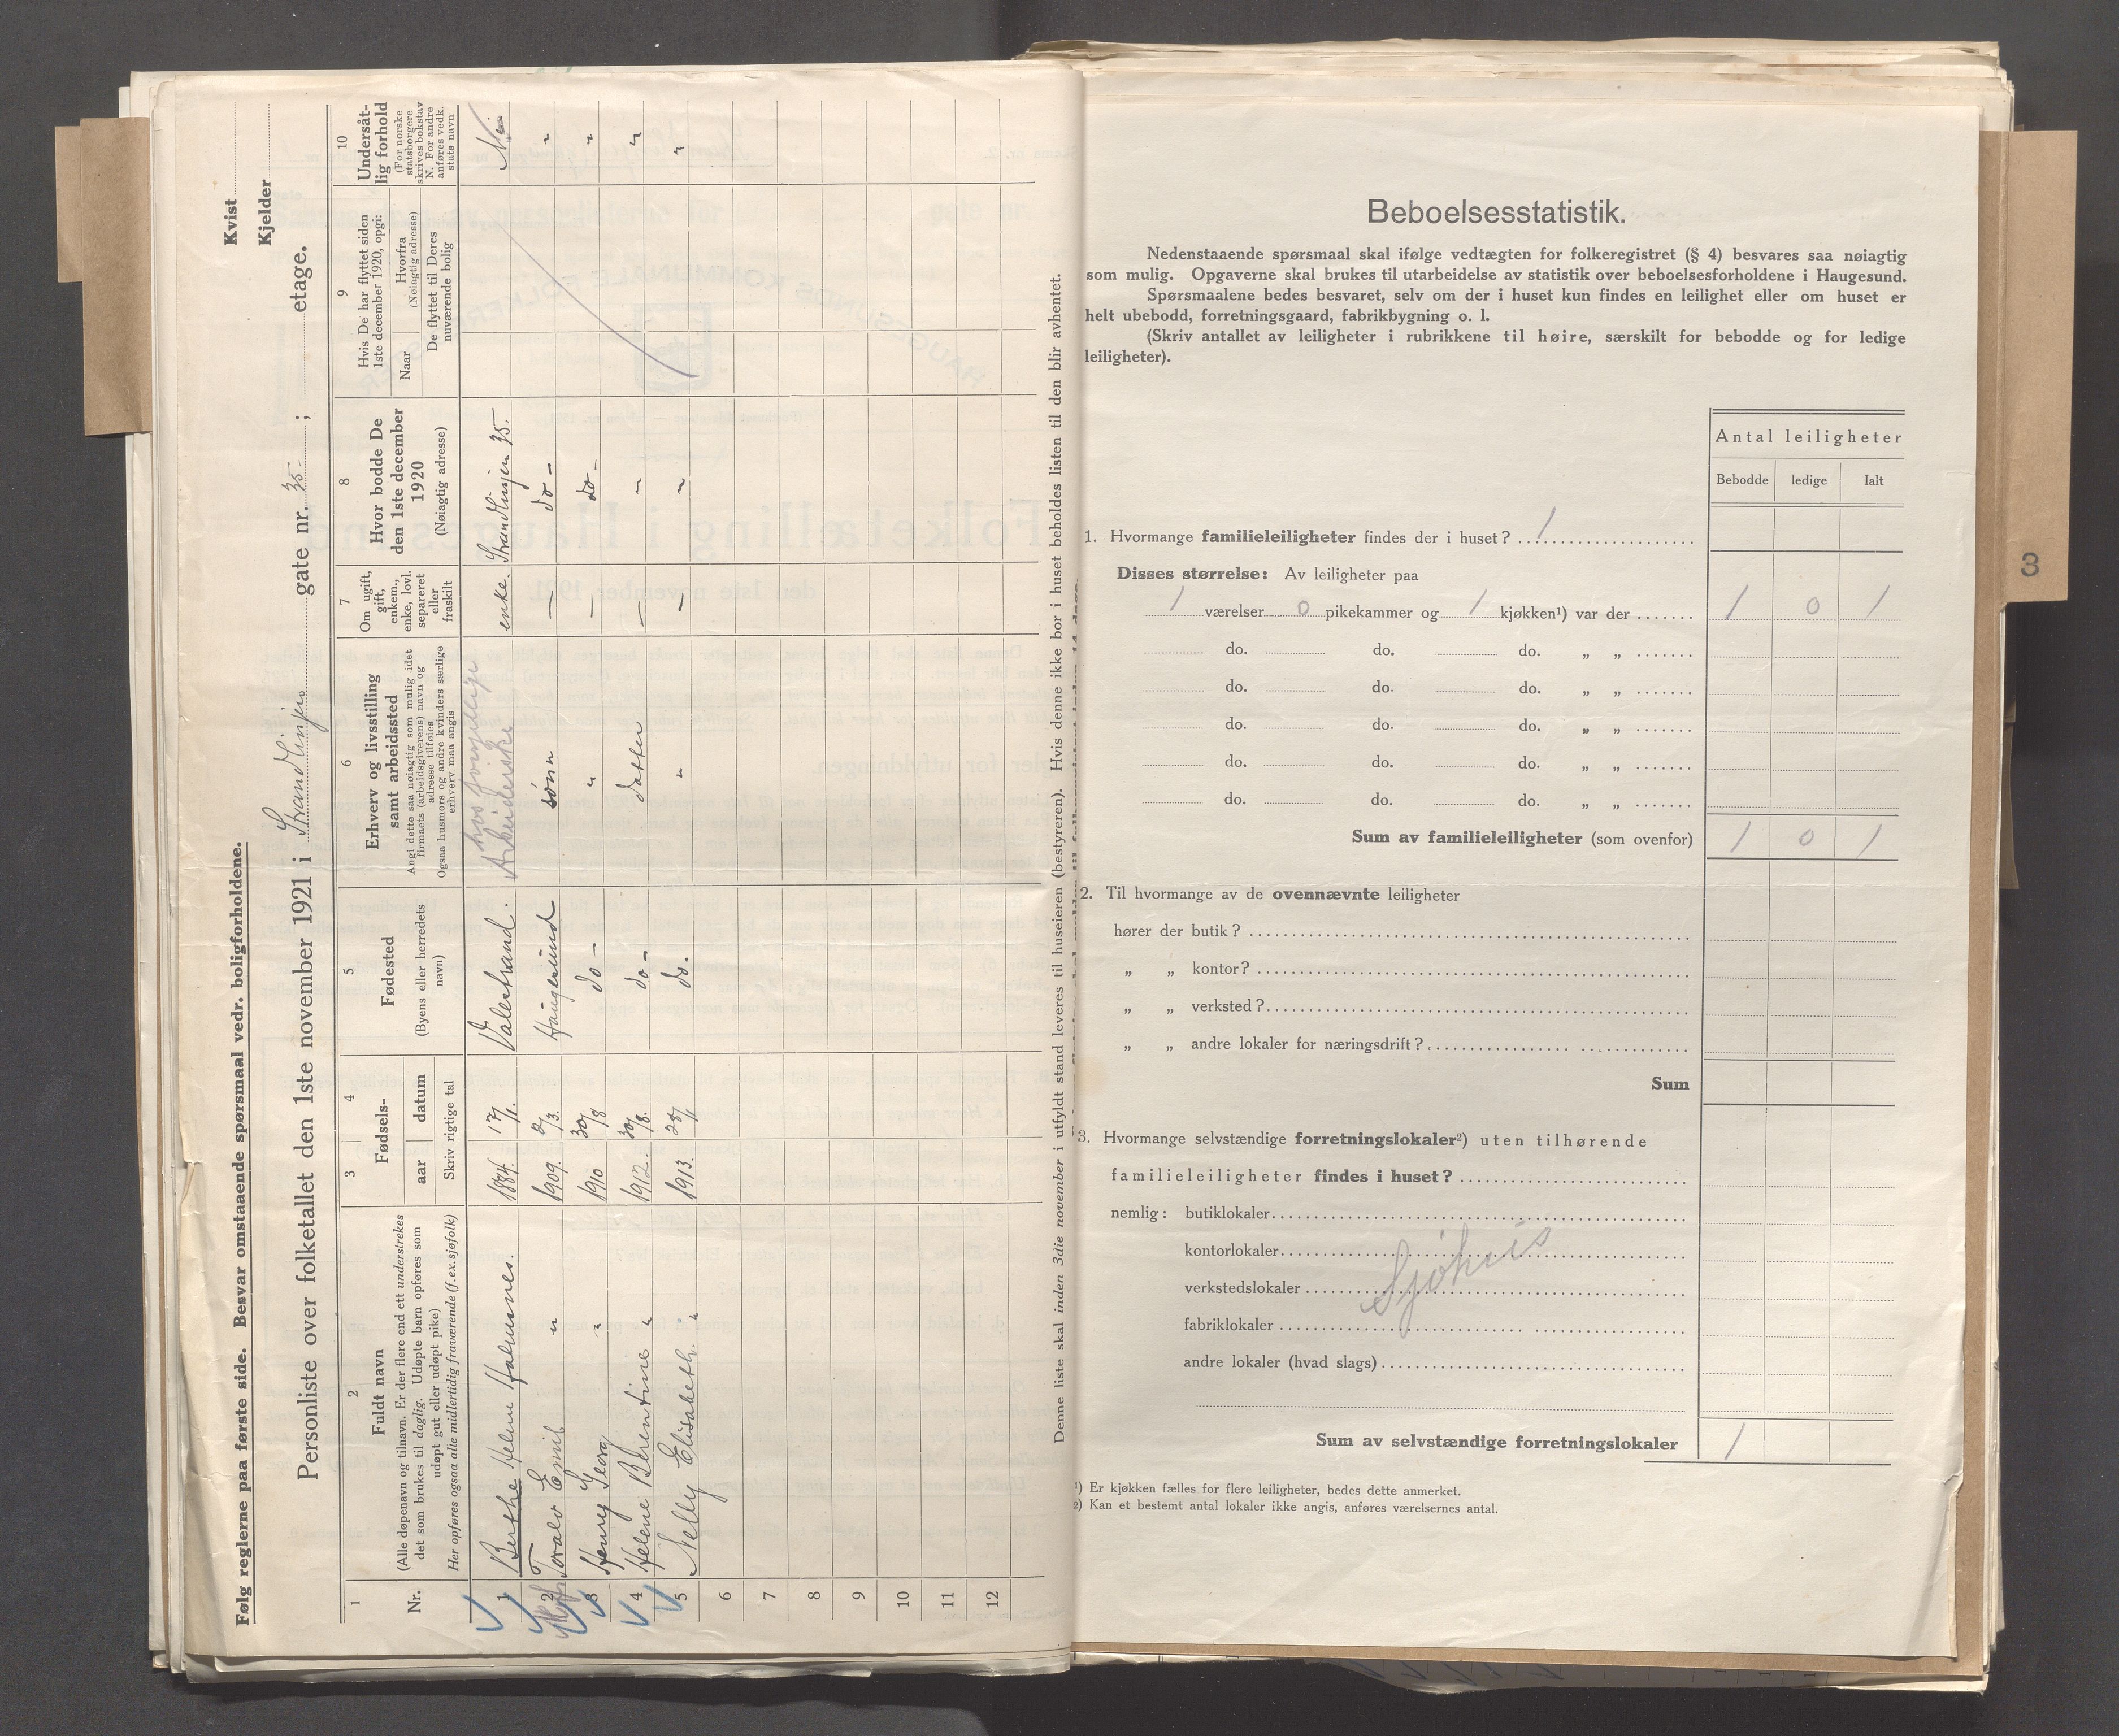 Kvist
Kjelder
Følg reglerne paa første side. Besvar omstaaende spørsmaal vedr. boligforholdene.
Personliste over folketallet den 1ste november 1921 i Strandlinjen gate nr. 35 ; etage.
1 2 3 4 5 6 7 8 9 10
Nr.
Fuldt navn
(Alle døpenavn og tilnavn. Er der flere end ett understrekes
det som brukes til daglig. Udøpte barn opføres som
udøpt gut eller udøpt pike)
Her opføres ogsaa alle midlertidig fraværende (f.ex.sjøfolk)
Fødsels-
aar datum
Skriv rigtige tal
Fødested
(Byens eller herredets
navn)
Erhverv og livsstilling
samt arbeidssted
Angi dette saa nøiagtig som mulig idet
firmaets (arbeidsgiverens) navn og
adresse tilføies
Ogsaa husmors og andre kvinders særlige
erhverv maa angis
Om ugift,
gift,
enkem.,
enke, lovl.
separeret
eller
fraskilt
Hvor bodde De
den 1ste december
1920
(Nøiagtig adresse)
Hvis De har flyttet siden
1ste december 1920, opgi:
Naar
Hvorfra
(Nøiagtig adresse)
De flyttet til Deres
nuværende bolig
Undersåt-
lig forhold
(For norske
statsborgere
skrives bokstav
N. For andre
anføres vedk.
stats navn
1 Berthe Helene 1884. 17/1. Valestrand. Arbeiderske enke. Strandlinjen 35. N
2 Toralv Emil " 1909. 2/3. Haugesund sönn — do —
3 Henry Georg " 1910 30/8 do — " — do —
4 Helene Berentine " 1912. 30/8. do — datter — "
5 Nelly Elisabeth " 1913. 28/1 do. " — "
6
7
8
9
10
11
12
Denne liste skal inden 3die november i utfyldt stand leveres til huseieren (bestyreren). Hvis denne ikke bor i huset beholdes listen til den blir avhentet.
Beboelsesstatistik.
Nedenstaaende spørsmaal skal ifølge vedtægten for folkeregistret (§ 4) besvares saa nøiagtig
som mulig. Opgaverne skal brukes til utarbeidelse av statistik over beboelsesforholdene i Haugesund.
Spørsmaalene bedes besvaret, selv om der i huset kun findes en leilighet eller om huset er
helt ubebodd, forretningsgaard, fabrikbygning o. l.
(Skriv antallet av leiligheter i rubrikkene til høire, særskilt for bebodde og for ledige
leiligheter).
Antal leiligheter
Bebodde ledige Ialt
1. Hvormange familieleiligheter findes der i huset? 1
Disses størrelse: Av leiligheter paa
1 værelser 0 pikekammer og 1 kjøkken¹) var der 1 0 1
do. do. do. „ „
do. do. do. „ „
do. do. do. „ „
do. do. do. „ „
do. do. do. „ „
Sum av familieleiligheter (som ovenfor) 1 0 1
2. Til hvormange av de ovennævnte leiligheter
hører der butik?
„ „ kontor?
„ „ verksted?
„ „ andre lokaler for næringsdrift?
Sum
3. Hvormange selvstændige forretningslokaler²) uten tilhørende
familieleiligheter findes i huset?
nemlig: butiklokaler
kontorlokaler
verkstedslokaler
fabriklokaler
andre lokaler (hvad slags)
Sjøhus
Sum av selvstændige forretningslokaler 1
¹) Er kjøkken fælles for flere leiligheter, bedes dette anmerket.
²) Kan et bestemt antal lokaler ikke angis, anføres værelsernes antal.
3